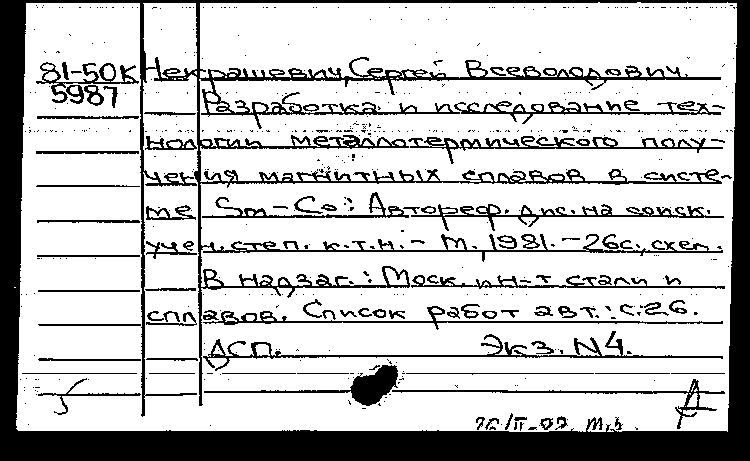 81-50К Некрашевич, Сергей Всеволодович.
5987 Разработка и исследование тех-
нологии металлотермического полу-
чения магнитных сплавов в систе-
ме Sm-Co: Автореф. дис. на соиск.
учен. степ. к.т.н. - М., 1981. - 26с., схем.
В надзаг.: Моск. ин-т стали и
сплавов. Список работ авт.: с.26.
ДСП. Экз. N4.